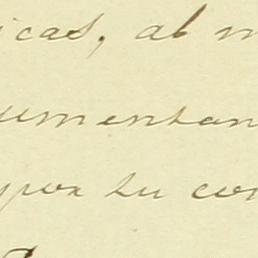 icas, al m
umentan
por su con